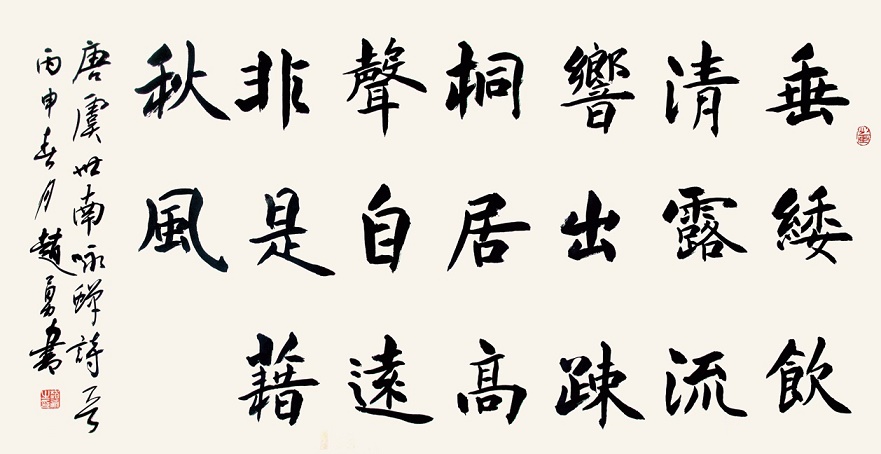 垂緌飲
清露流
響出疎
桐居高
聲自遠
非是藉
秋風
唐虞世南咏蟬詩一首
丙申春月趙勇書